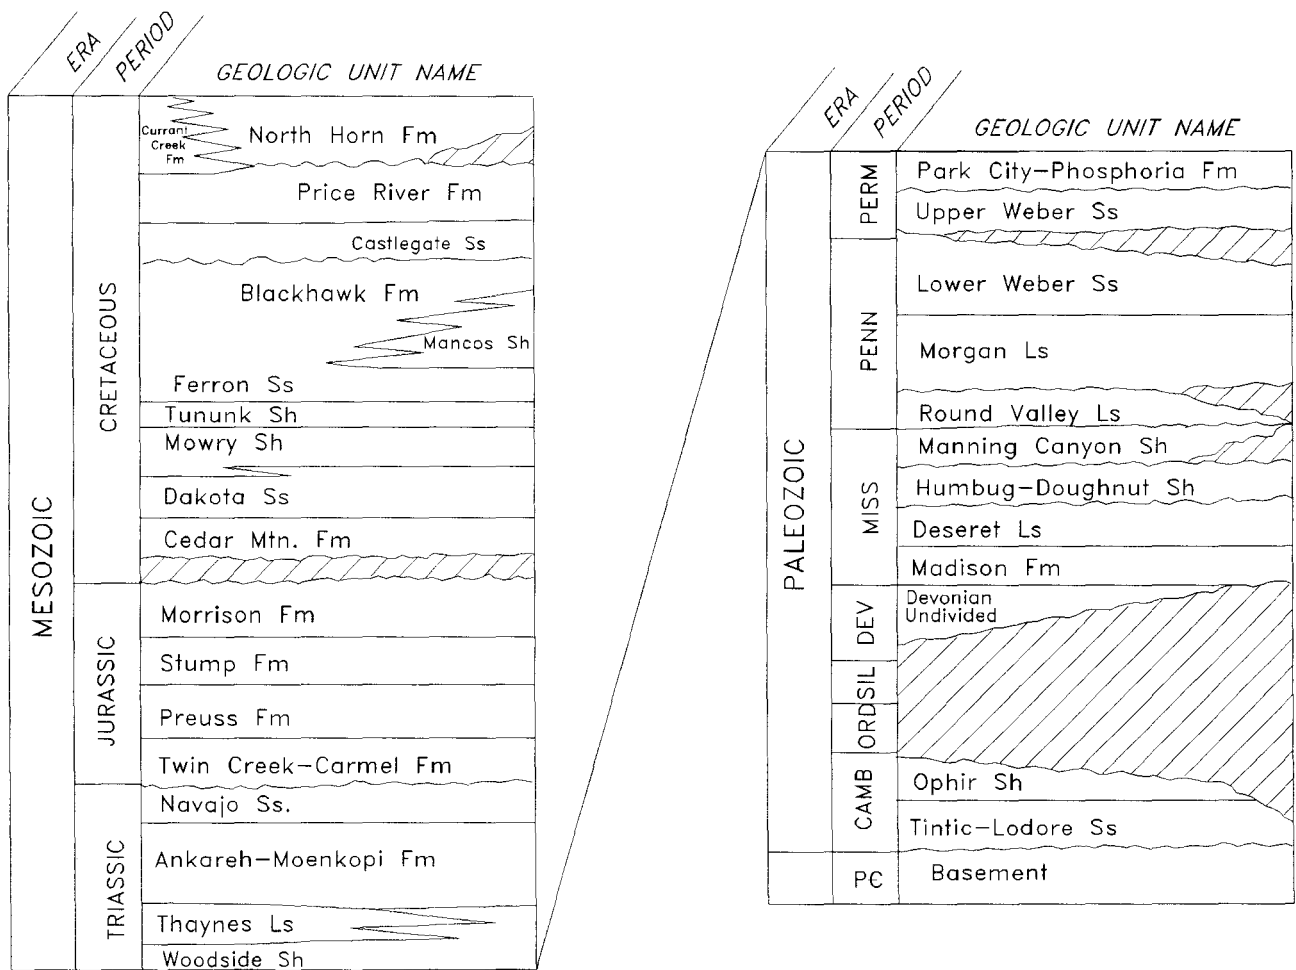 ERA
PERIOD
GEOLOGIC UNIT NAME
MESOZOIC
CRETACEOUS
Currant
Creek
Fm
North Horn Fm
Price River Fm
Castlegate Ss
Blackhawk Fm
Mancos Sh
Ferron Ss
Tununk Sh
Mowry Sh
Dakota Ss
Cedar Mtn. Fm
JURASSIC
Morrison Fm
Stump Fm
Preuss Fm
Twin Creek-Carmel Fm
TRIASSIC
Navajo Ss.
Ankareh-Moenkopi Fm
Thaynes Ls
Woodside Sh
ERA
PERIOD
GEOLOGIC UNIT NAME
PALEOZOIC
PERM
Park City-Phosphoria Fm
Upper Weber Ss
PENN
Lower Weber Ss
Morgan Ls
Round Valley Ls
MISS
Manning Canyon Sh
Humbug-Doughnut Sh
Deseret Ls
Madison Fm
DEV
Devonian
Undivided
SIL
ORD
CAMB
Ophir Sh
Tintic-Lodore Ss
P€
Basement